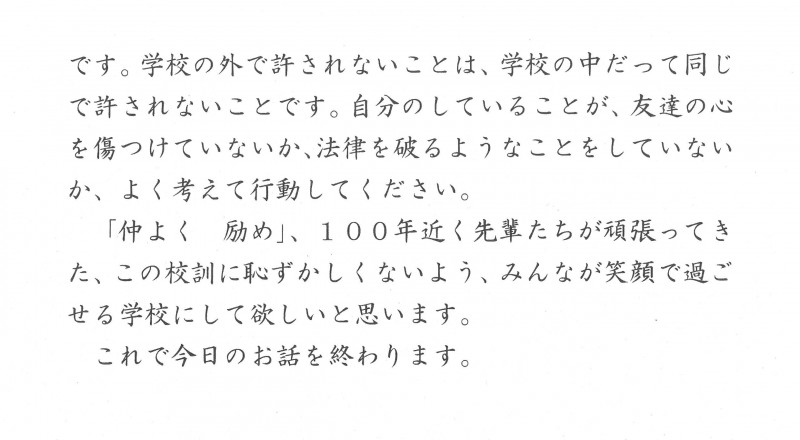 です。学校の外で許されないことは、学校の中だって同じ
で許されないことです。自分のしていることが、友達の心
を傷つけていないか、法律を破るようなことをしていない
か、よく考えて行動してください。
　「仲よく　励め」、１００年近く先輩たちが頑張ってき
た、この校訓に恥ずかしくないよう、みんなが笑顔で過ご
せる学校にして欲しいと思います。
　これで今日のお話を終わります。